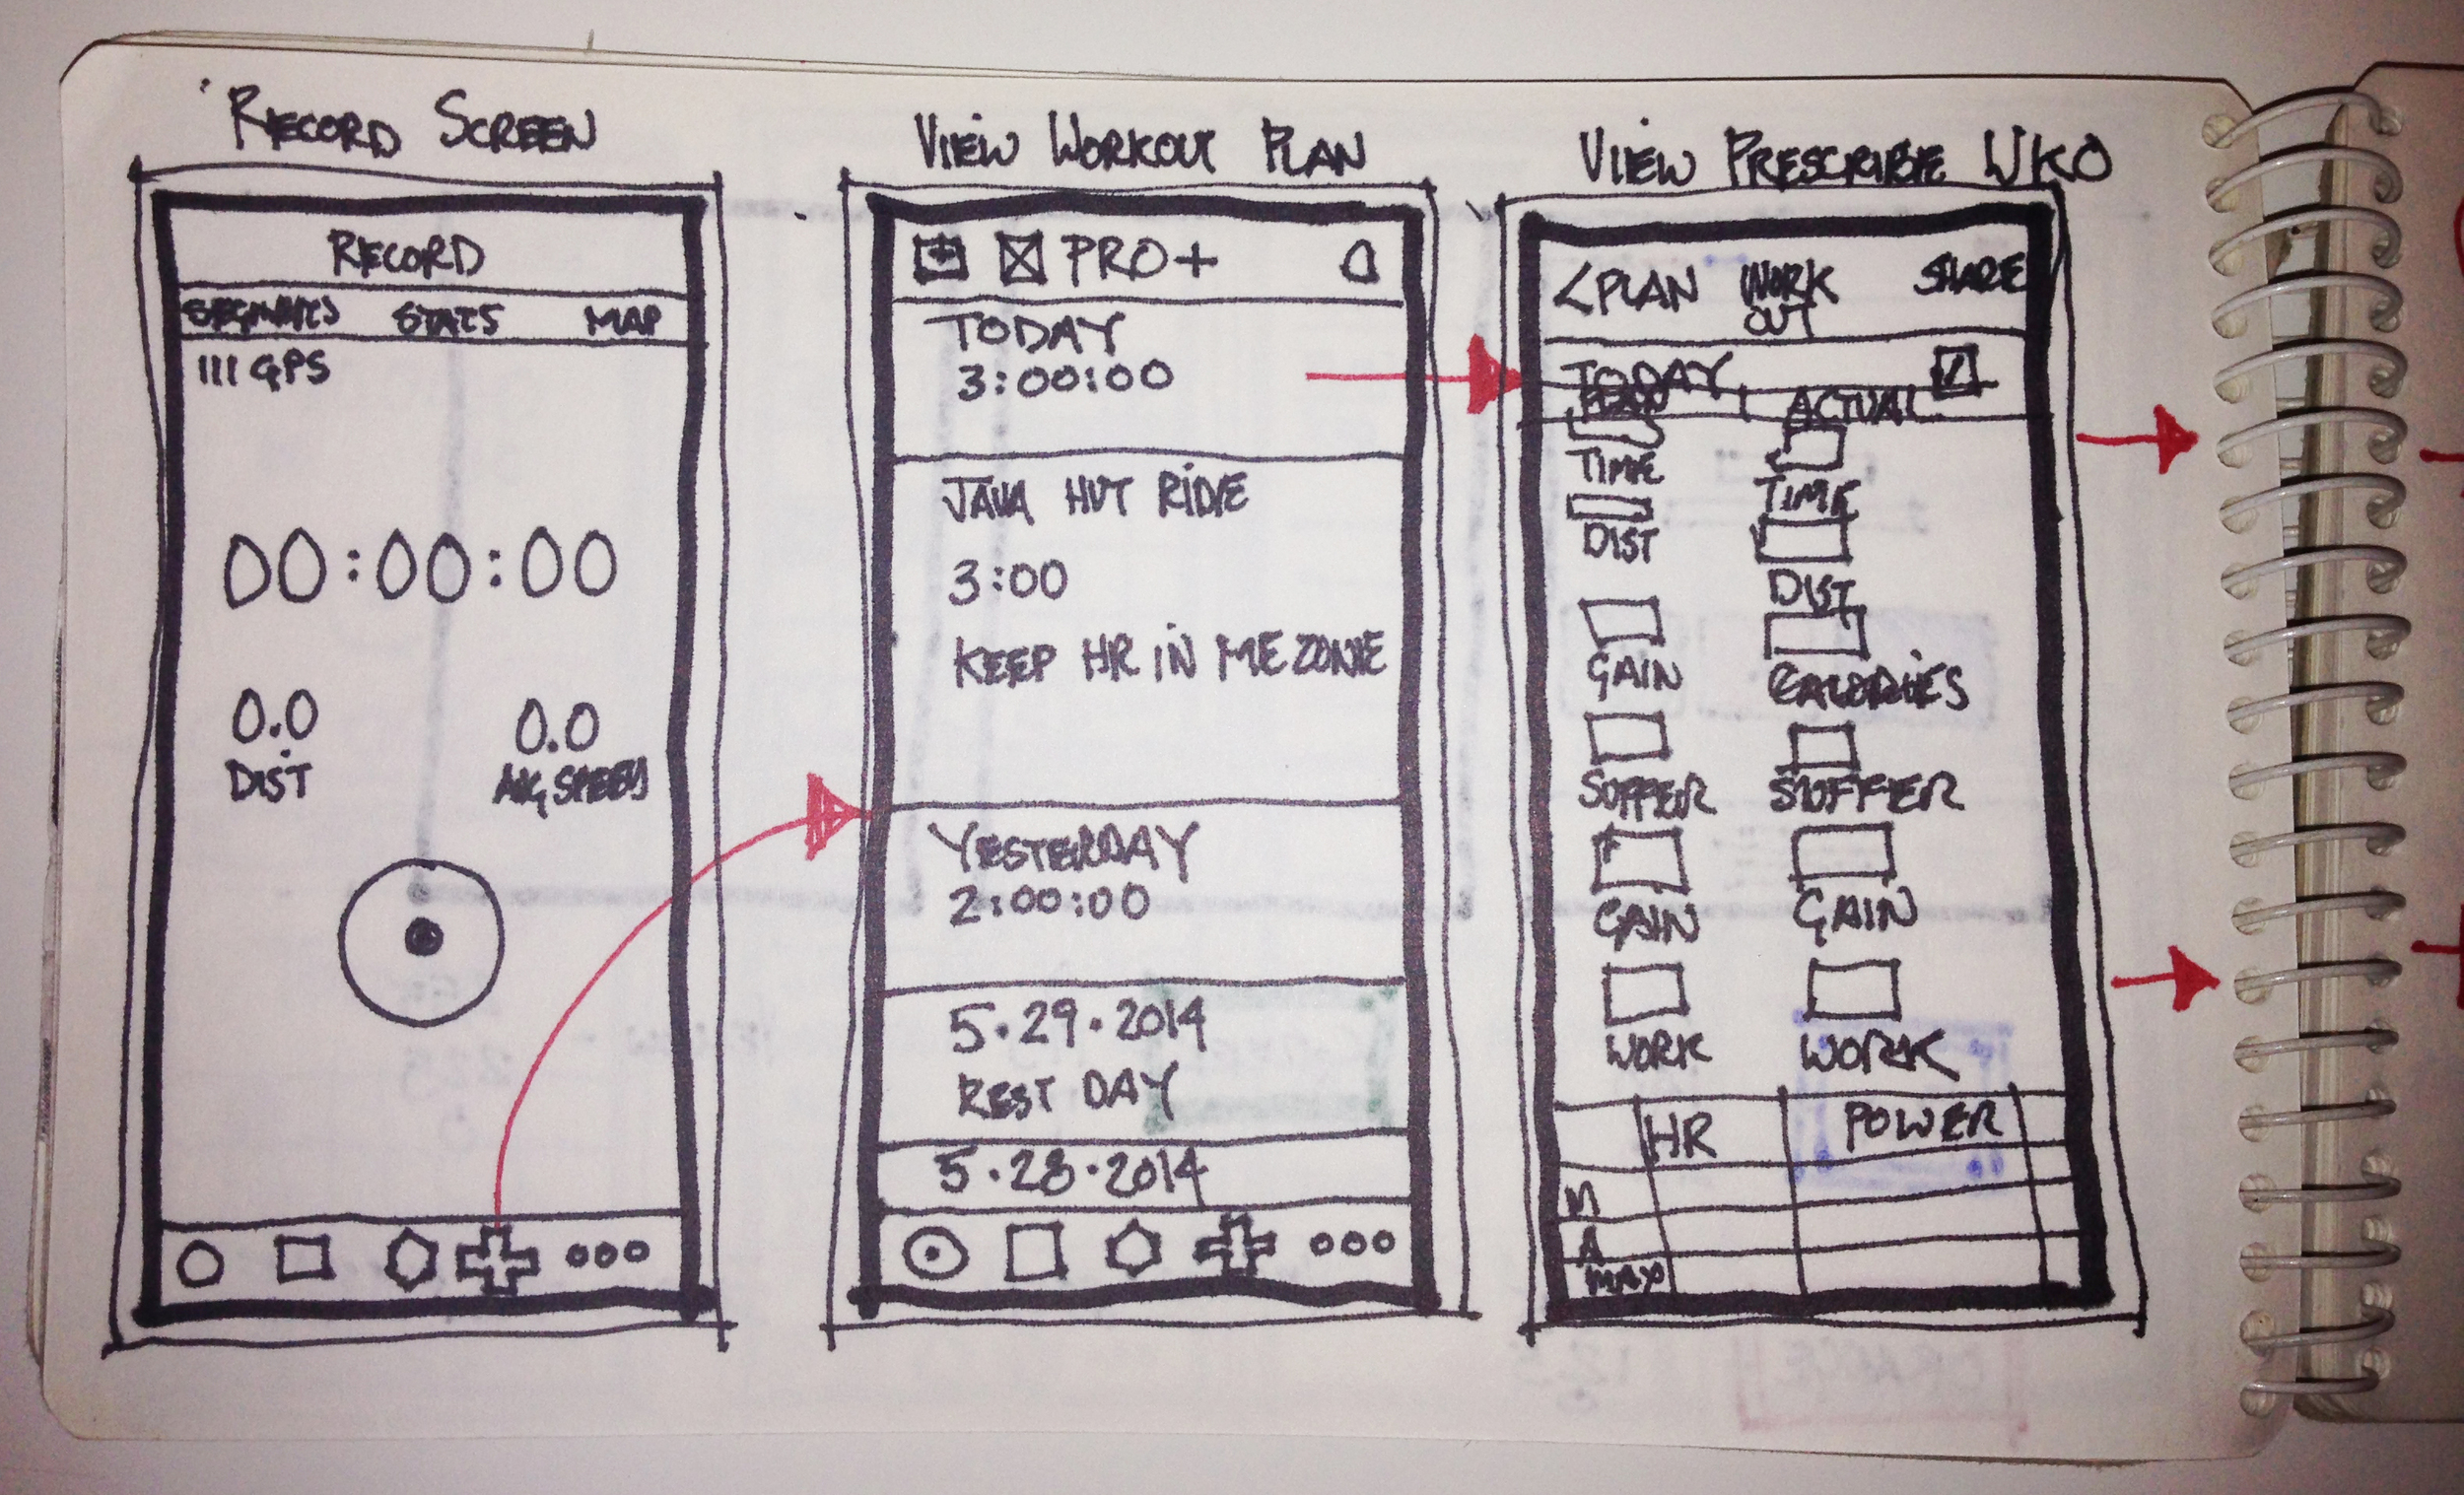 RECORD SCREEN
RECORD
SEGMENTS STATS MAP
GPS
00:00:00
0.0 0.0
DIST AVG SPEED
VIEW WORKOUT PLAN
PRO+
TODAY
3:00:00
JAVA HUT RIDE
3:00
KEEP HR IN ME ZONE
YESTERDAY
2:00:00
5.29.2014
REST DAY
5.28.2014
VIEW PRESCRIBE WKO
<PLAN WORK SHARE
OUT
TODAY
ACTUAL
TIME TIME
DIST DIST
GAIN CALORIES
SUFFER SUFFER
GAIN GAIN
WORK WORK
HR POWER
M
A
MAX